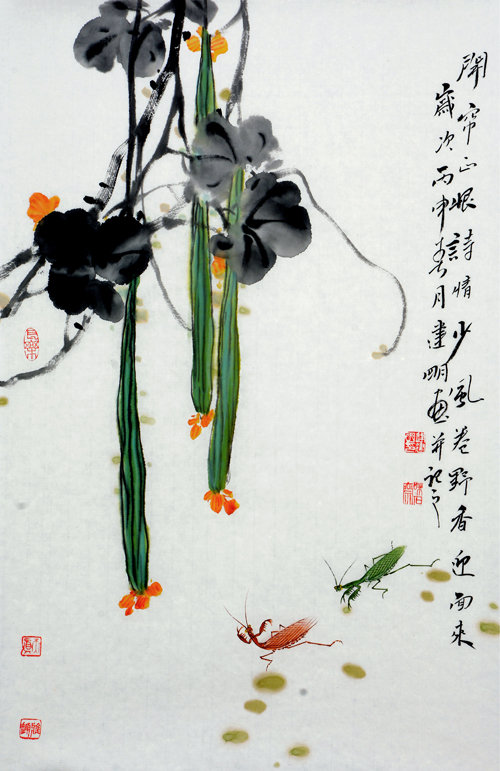 開帘正恨詩情少風卷野香迎面來
歲次丙申春月建明画并記之